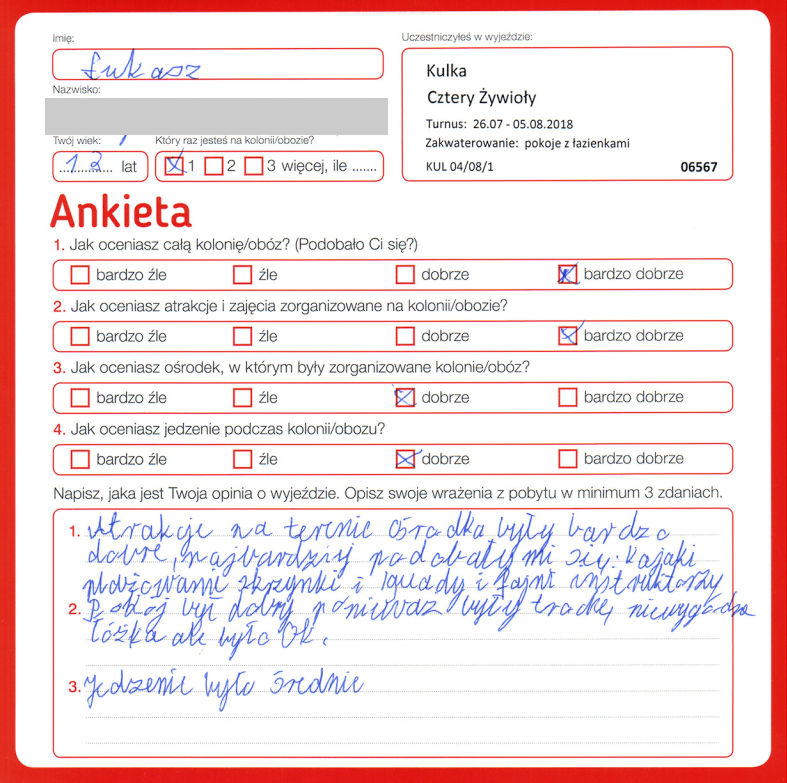 Imię:
Łukasz
Nazwisko:
Twój wiek:
12 lat
Który raz jesteś na kolonii/obozie?
1 2 3 więcej, ile .......
Uczestniczyłeś w wyjeździe:
Kulka
Cztery Żywioły
Turnus: 26.07 - 05.08.2018
Zakwaterowanie: pokoje z łazienkami
KUL 04/08/1 06567
Ankieta
1. Jak oceniasz całą kolonię/obóz? (Podobało Ci się?)
bardzo źle źle dobrze bardzo dobrze
2. Jak oceniasz atrakcje i zajęcia zorganizowane na kolonii/obozie?
bardzo źle źle dobrze bardzo dobrze
3. Jak oceniasz ośrodek, w którym były zorganizowane kolonie/obóz?
bardzo źle źle dobrze bardzo dobrze
4. Jak oceniasz jedzenie podczas kolonii/obozu?
bardzo źle źle dobrze bardzo dobrze
Napisz, jaka jest Twoja opinia o wyjeździe. Opisz swoje wrażenia z pobytu w minimum 3 zdaniach.
1. Atrakcje na terenie Ośrodka były bardzo
dobre, najbardziej podobały mi się: Kajaki
skrzynki i quady i fajni instruktorzy
2. Pokój był dobry ponieważ były trochę niewygodne
łóżka ale było Ok.
3. jedzenie było średnie